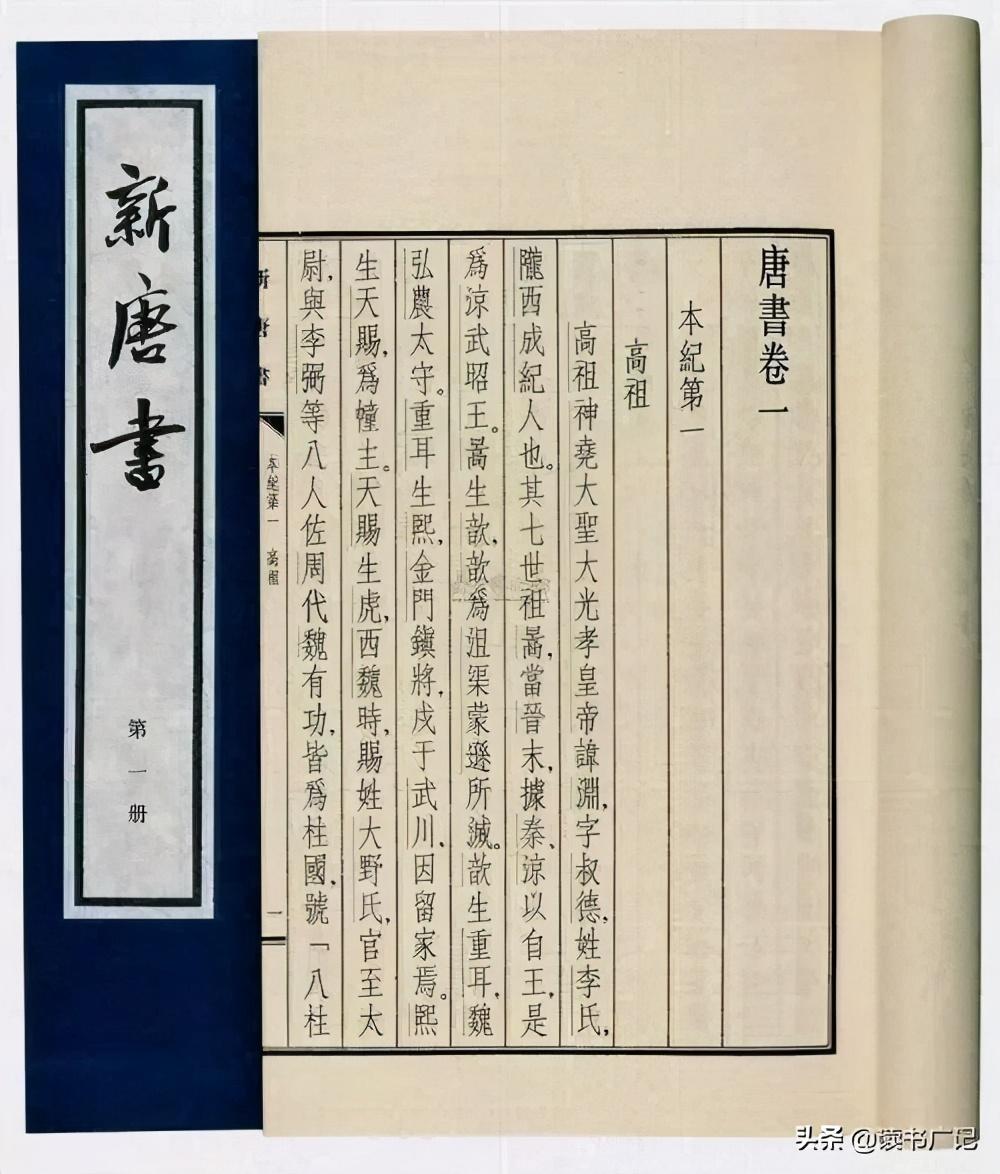 新唐書
第一册
唐書卷一
本紀第一
高祖
高祖神堯大聖大光孝皇帝諱淵，字叔德，姓李氏，
隴西成紀人也。其七世祖暠，當晉末，據秦、涼以自王，是
爲涼武昭王。暠生歆，歆爲沮渠蒙遜所滅。歆生重耳，魏
弘農太守。重耳生熙，金門鎮將，戍于武川，因留家焉。熙
生天賜，爲幢主。天賜生虎，西魏時，賜姓大野氏，官至太
尉，與李弼等八人佐周代魏有功，皆爲柱國，號「八柱
本紀第一 高祖
一
头条 @读书广记